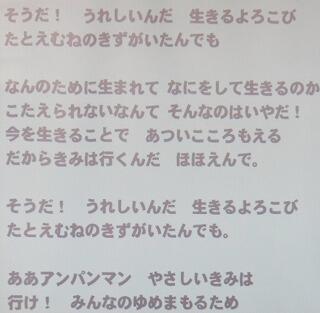 そうだ！　うれしいんだ　生きるよろこび
たとえむねのきずがいたんでも
なんのために生まれて なにをして生きるのか
こたえられないなんて そんなのはいやだ！
今を生きることで　あついこころもえる
だからきみは行くんだ　ほほえんで。
そうだ！　うれしいんだ　生きるよろこび
たとえむねのきずがいたんでも。
ああアンパンマン　やさしいきみは
行け！　みんなのゆめまもるため